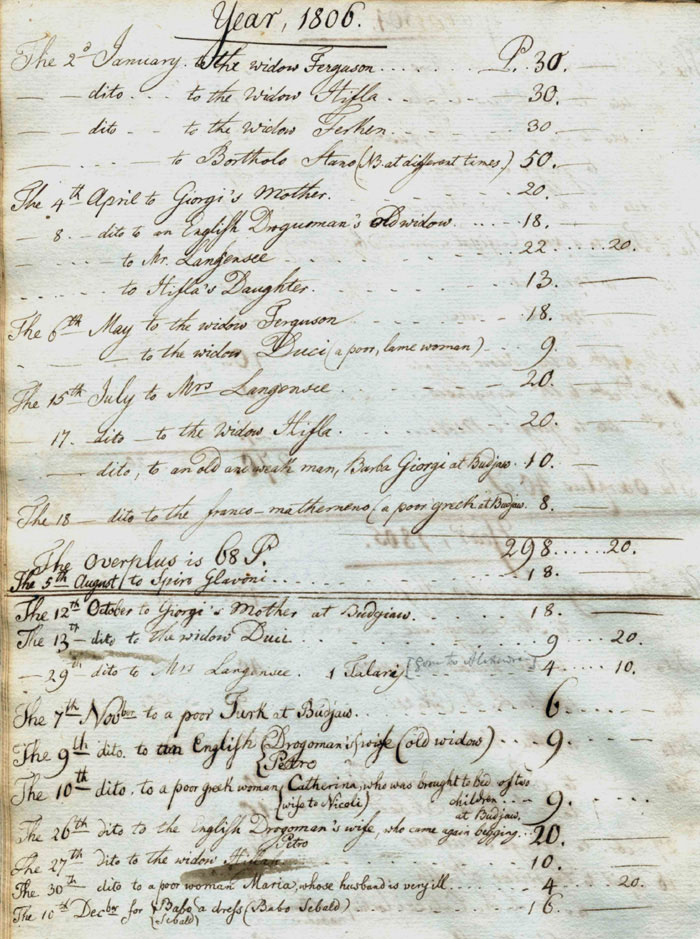 Year, 1806.
The 2d January. to the widow Ferguson ..... P. 30. —
— dito ... to the widow Hifla .... 30. —
— dito — to the widow Ferhen 30 —
— to Bortholo Stano (NB. at different times.) 50. —
The 4th April to Giorgi's Mother. .... 20. —
— 8. — dito to an English Drogueman's old widow .... 18. —
— to Mr. Langensee 22 .... 20.
.... to Hifla's Daughter. .... 13. —
The 6th May to the widow Ferguson .... 18. —
— to the widow Duci (a poor, lame woman) — 9 —
The 15th July to Mrs Langensee .... 20. —
— 17. — dito — to the widow Hifla. 20. —
— dito, to an old and weak man, Barba Giorgi at Budjaw. 10. —
The 18 — dito to the franco-mathemeno (a poor greek at Budjaw. 8. —
The overplus is 68 P. 298 ...... 20.
The 5th August, to Spiro Glavoni .... 18. —
The 12th October to Giorgi's Mother at Budgiaw. 18. —
The 13th — dito to the widow Duci .... 9 .... 20.
— 29th dito to Mrs Langensee. 1 Talari 4 .... 10.
The 7th Novber to a poor Turk at Budjaw. .... 6 —
The 9th dito. to an English (Drogoman's) wife (old widow) . 9. —
Petro
The 10th dito. to a poor greek woman (Catherina, who was brought to bed of two
(wife to Nicoli) children ... 9. —
at Budjaw.
The 26th dito to the English Drogoman's wife, who came again begging ... 20. —
Petro
The 27th dito to the widow .... 10. —
The 30th dito to a poor woman Maria, whose husband is very ill .... 4 .... 20.
The 10th Decber for (Babo) a dress (Babo Sebald) .... 16 —
(Sebald)